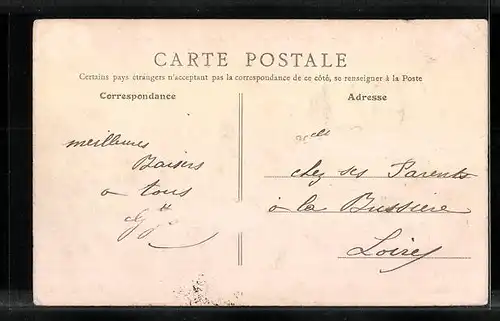 CARTE POSTALE
Certains pays étrangers n'acceptant pas la correspondance de ce côté, se renseigner à la Poste
Correspondance
Adresse
meilleures
Baisers
a tous
elle
chez ses Parents
à la Bussière
Loiret